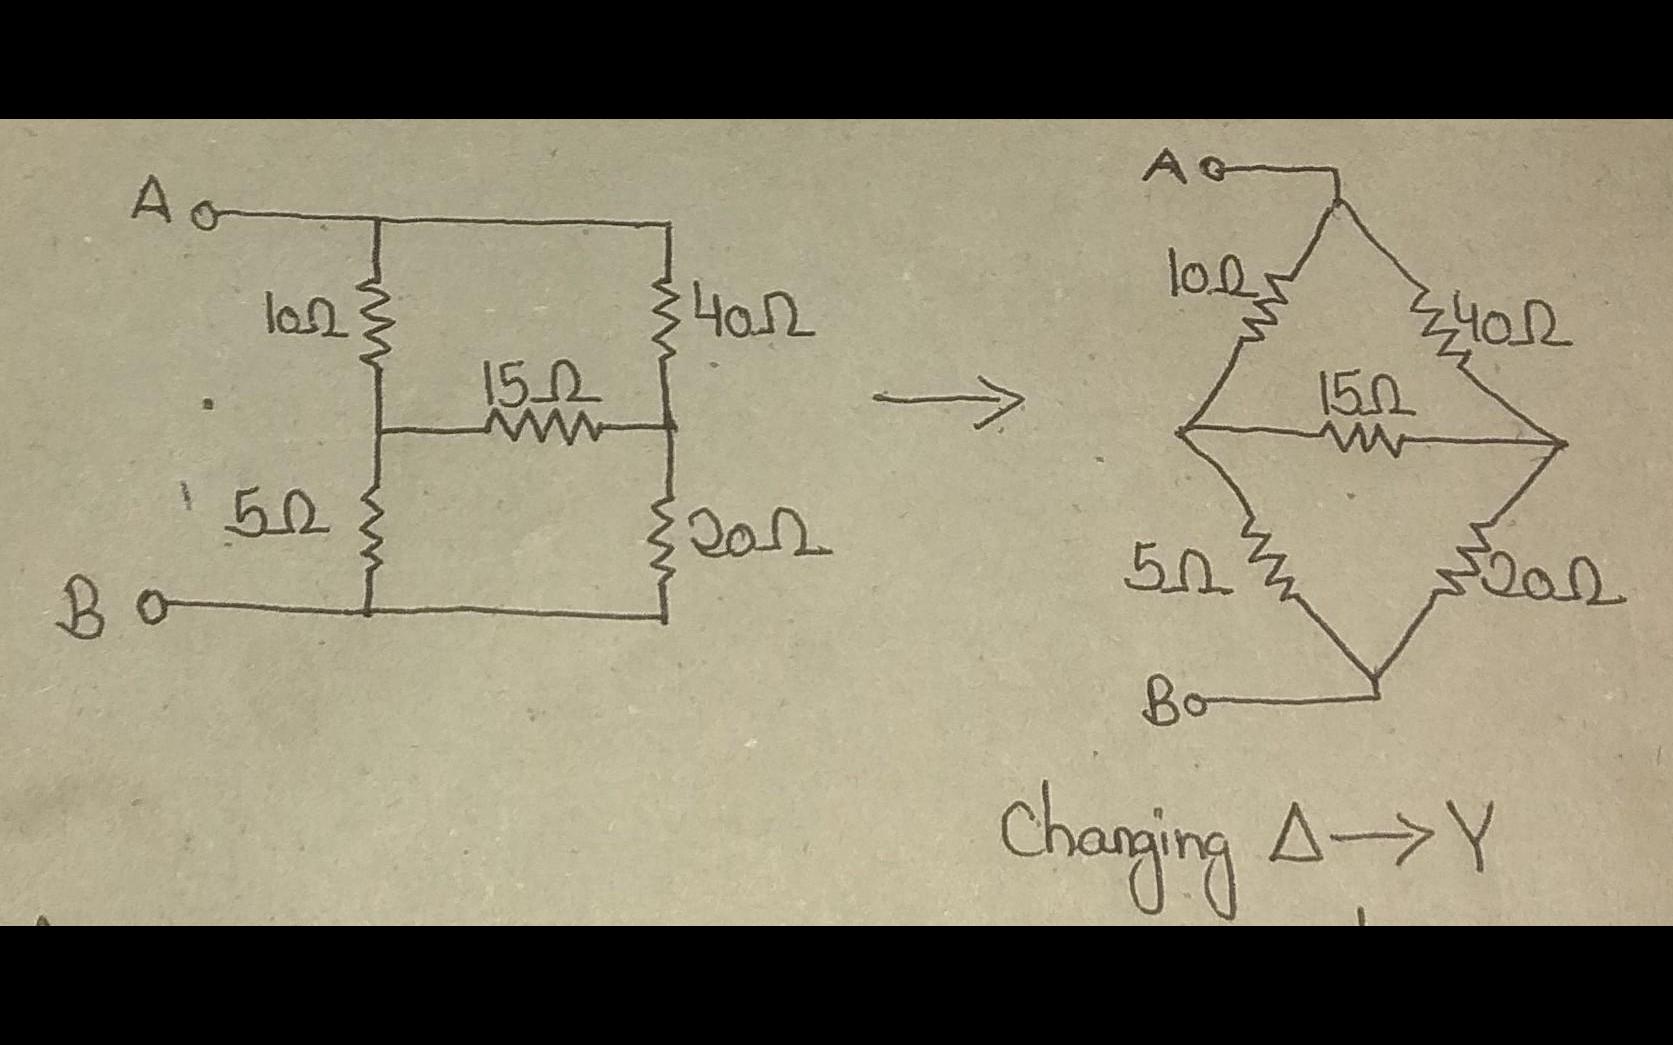 A
10Ω
40Ω
15Ω
5Ω
20Ω
B
A
10Ω
40Ω
15Ω
5Ω
20Ω
B
Changing Δ→Y